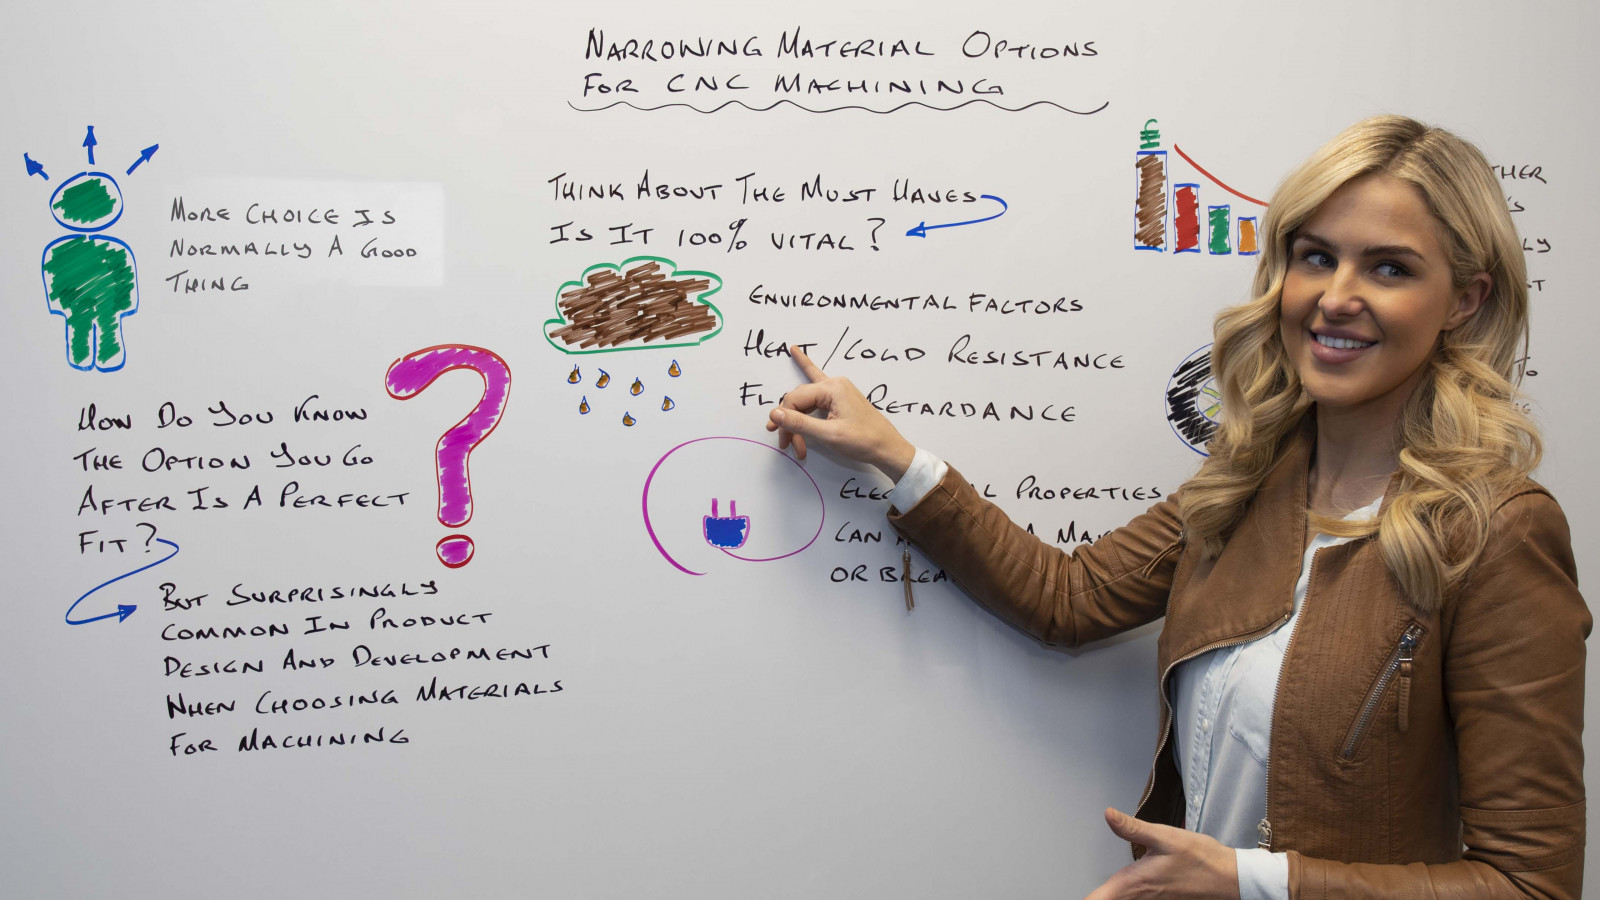 NARROWING MATERIAL OPTIONS
FOR CNC MACHINING
MORE CHOICE IS
NORMALLY A GOOD
THING
HOW DO YOU KNOW
THE OPTION YOU GO
AFTER IS A PERFECT
FIT?
BUT SURPRISINGLY
COMMON IN PRODUCT
DESIGN AND DEVELOPMENT
WHEN CHOOSING MATERIALS
FOR MACHINING
THINK ABOUT THE MUST HAVES
IS IT 100% VITAL?
ENVIRONMENTAL FACTORS
HEAT/COLD RESISTANCE
RETARDANCE
PROPERTIES
CAN
OR
£
TO